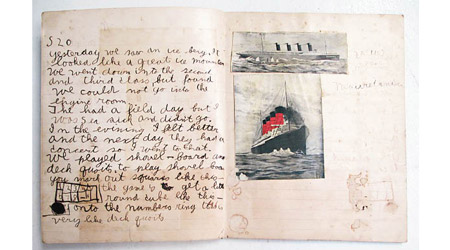 S 20
yesterday we saw an ice-berg. It
looked like a great ice mountain
We went down into the second
and third class but found
we could not go into the
engine room.
The had a field day but I
was sea sick and didn't go.
In the evening I felt better
and the next day they had a
concert so I went to that.
We played shovel-board and
deck quoits to play shovel board
you mark out squares like this
the game is to get a
round like this
onto the numbers ring
very like deck quoits
Mauretania